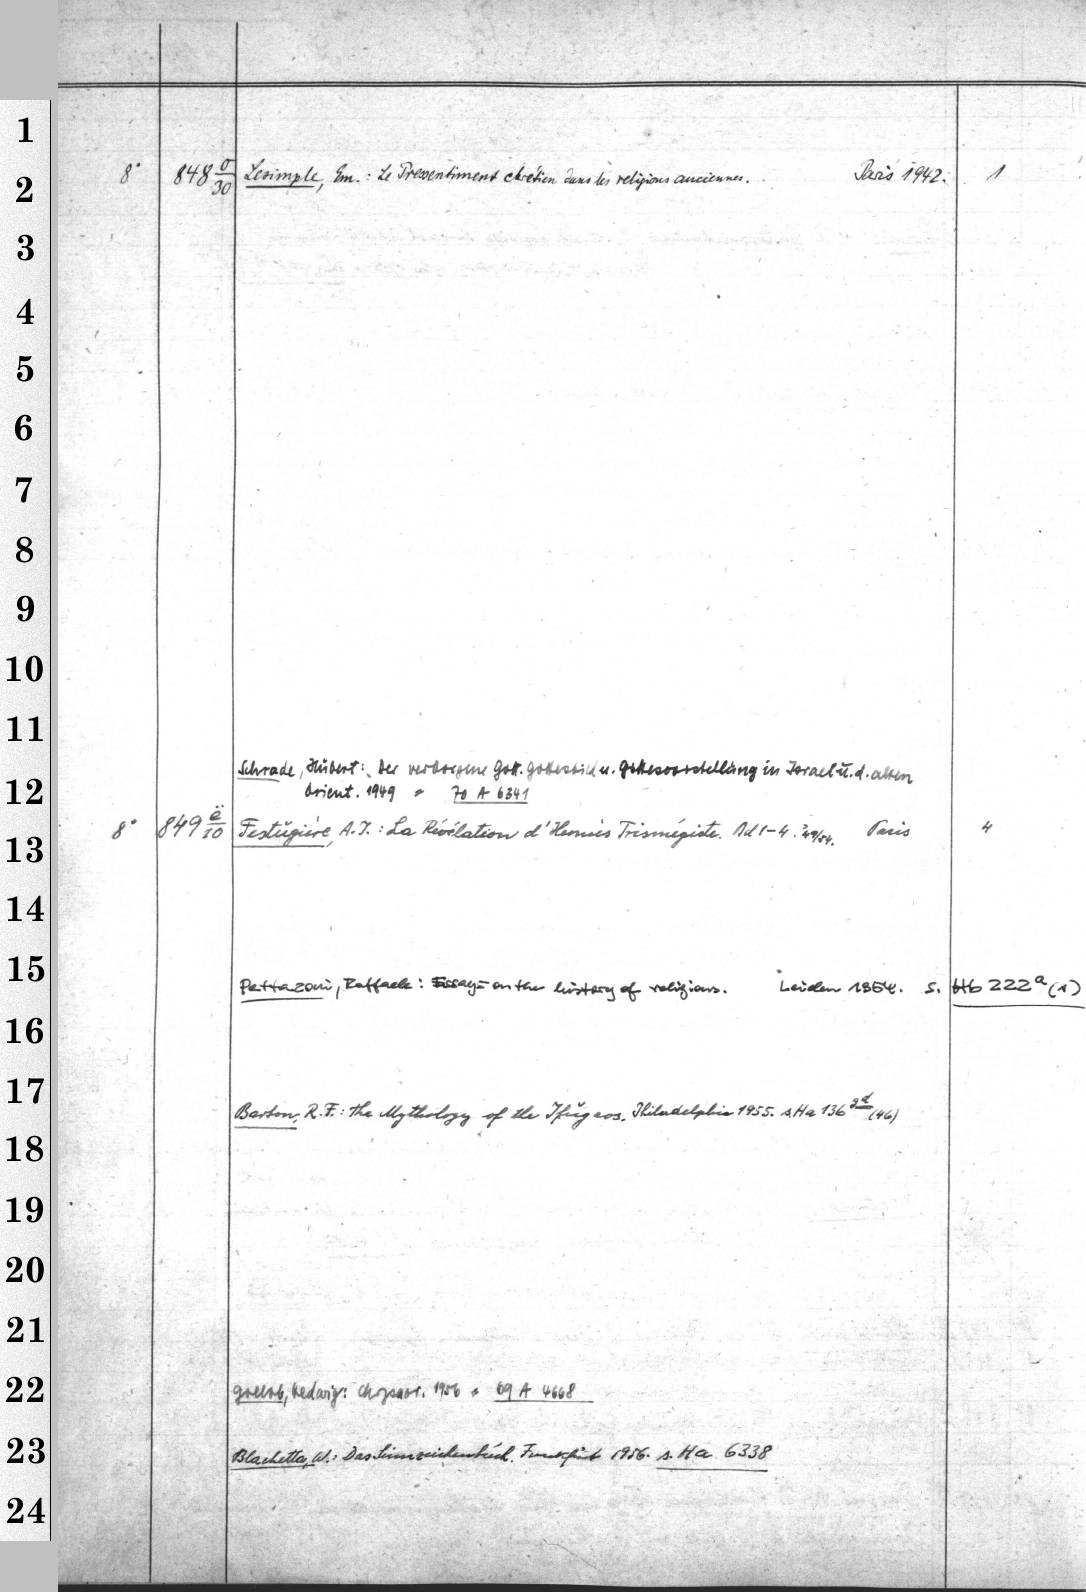 1
2
8° 848 σ/30 Lesimple, Em.: Le Pressentiment chrétien dans les religions anciennes. Paris 1942. 1
3
4
5
6
7
8
9
10
11
Schrade, Hubert: Der verborgene Gott. Gottesbild u. Gottesvorstellung in Israel u. d. alten
12
Orient. 1949 = 70 A 6341
8° 849 ë/10 Festugière, A.J.: La Révélation d'Hermès Trismégiste. Bd 1-4. 49/54. Paris 4
13
14
15
Pettazoni, Raffaele: Essays on the history of religions. Leiden 1954. s. Hb 222ª (1)
16
17
Barton, R.F.: the Mythology of the Ifugaos. Philadelphia 1955. s. Ha 136 (46)
18
19
20
21
22
Gollob, Hedwig: Chrysaor. 1956 = 69 A 4668
23
Blachetta, W.: Das Sinnzeichenbuch. Frankfurt 1956. s. Ha 6338
24